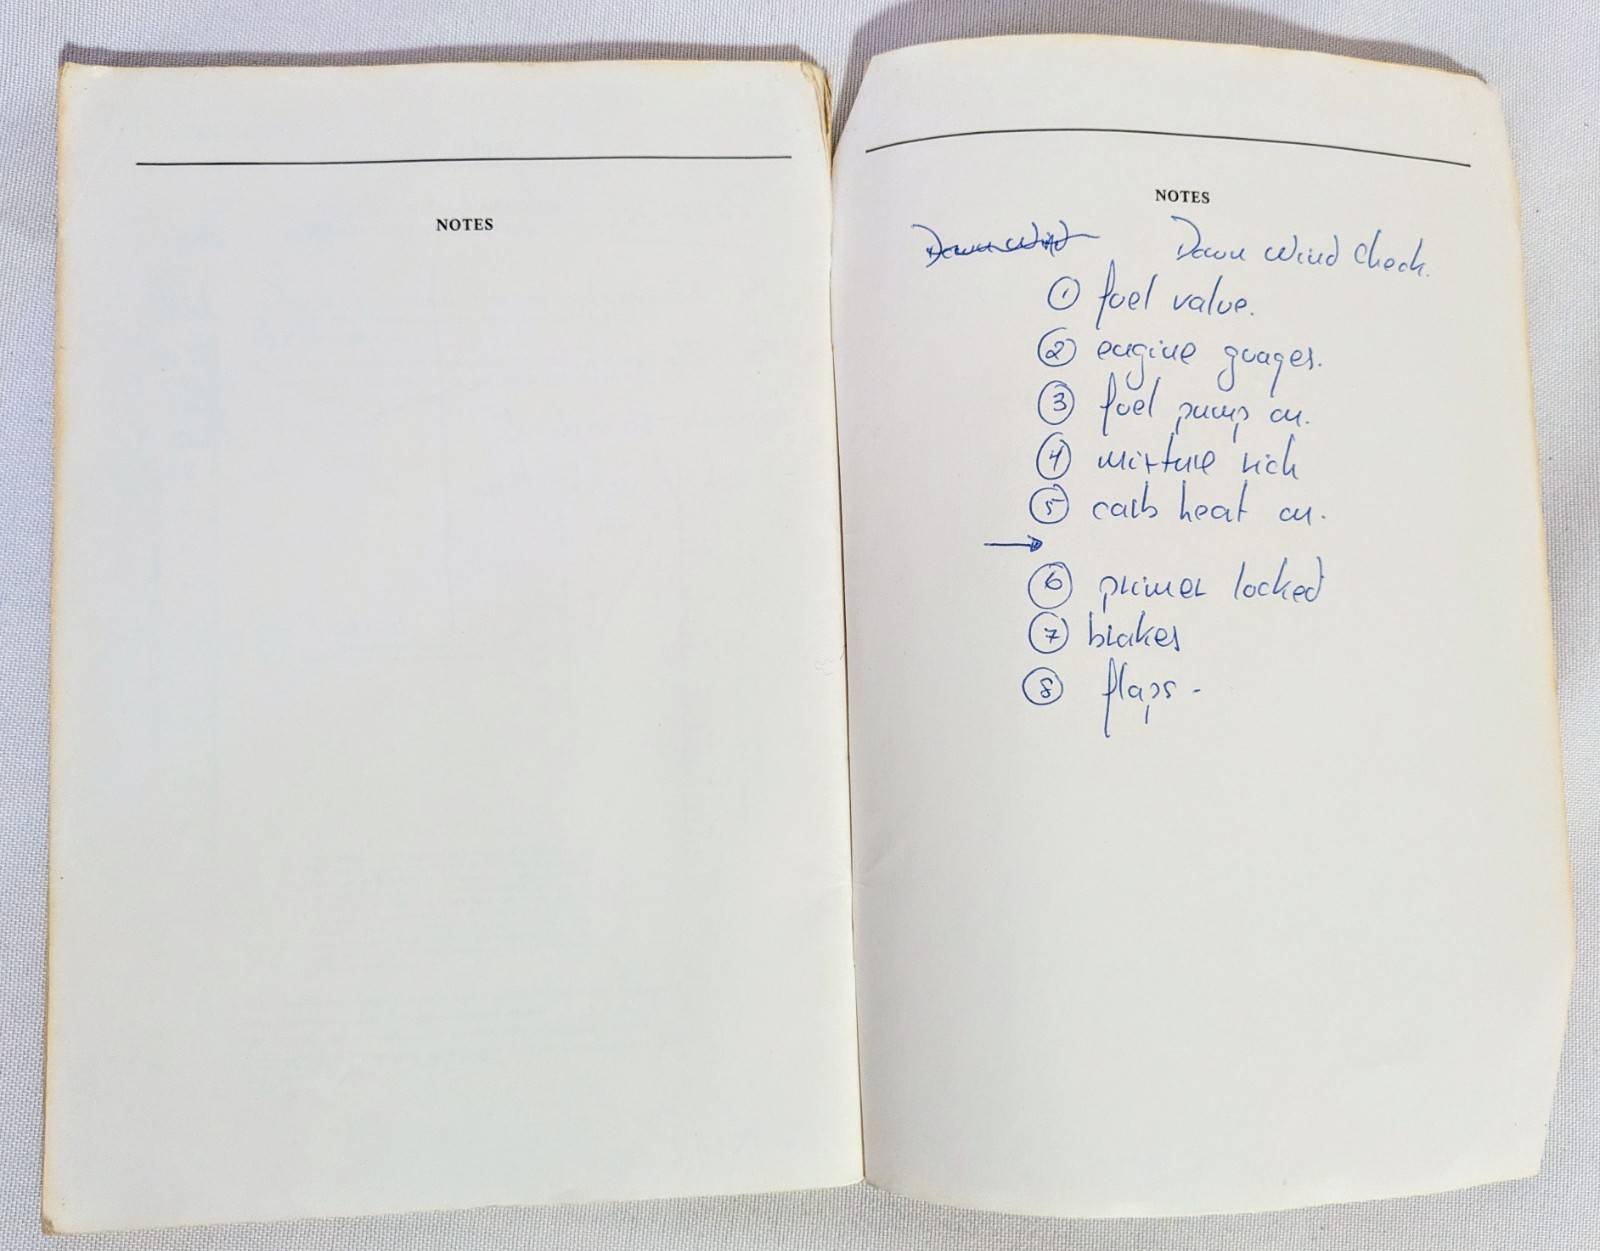 NOTES
NOTES
Down Wind
Down Wind Check.
① fuel value.
② engine guages.
③ fuel pump on.
④ mixture rich
⑤ carb heat on.
→
⑥ primer locked
⑦ brakes
⑧ flaps -